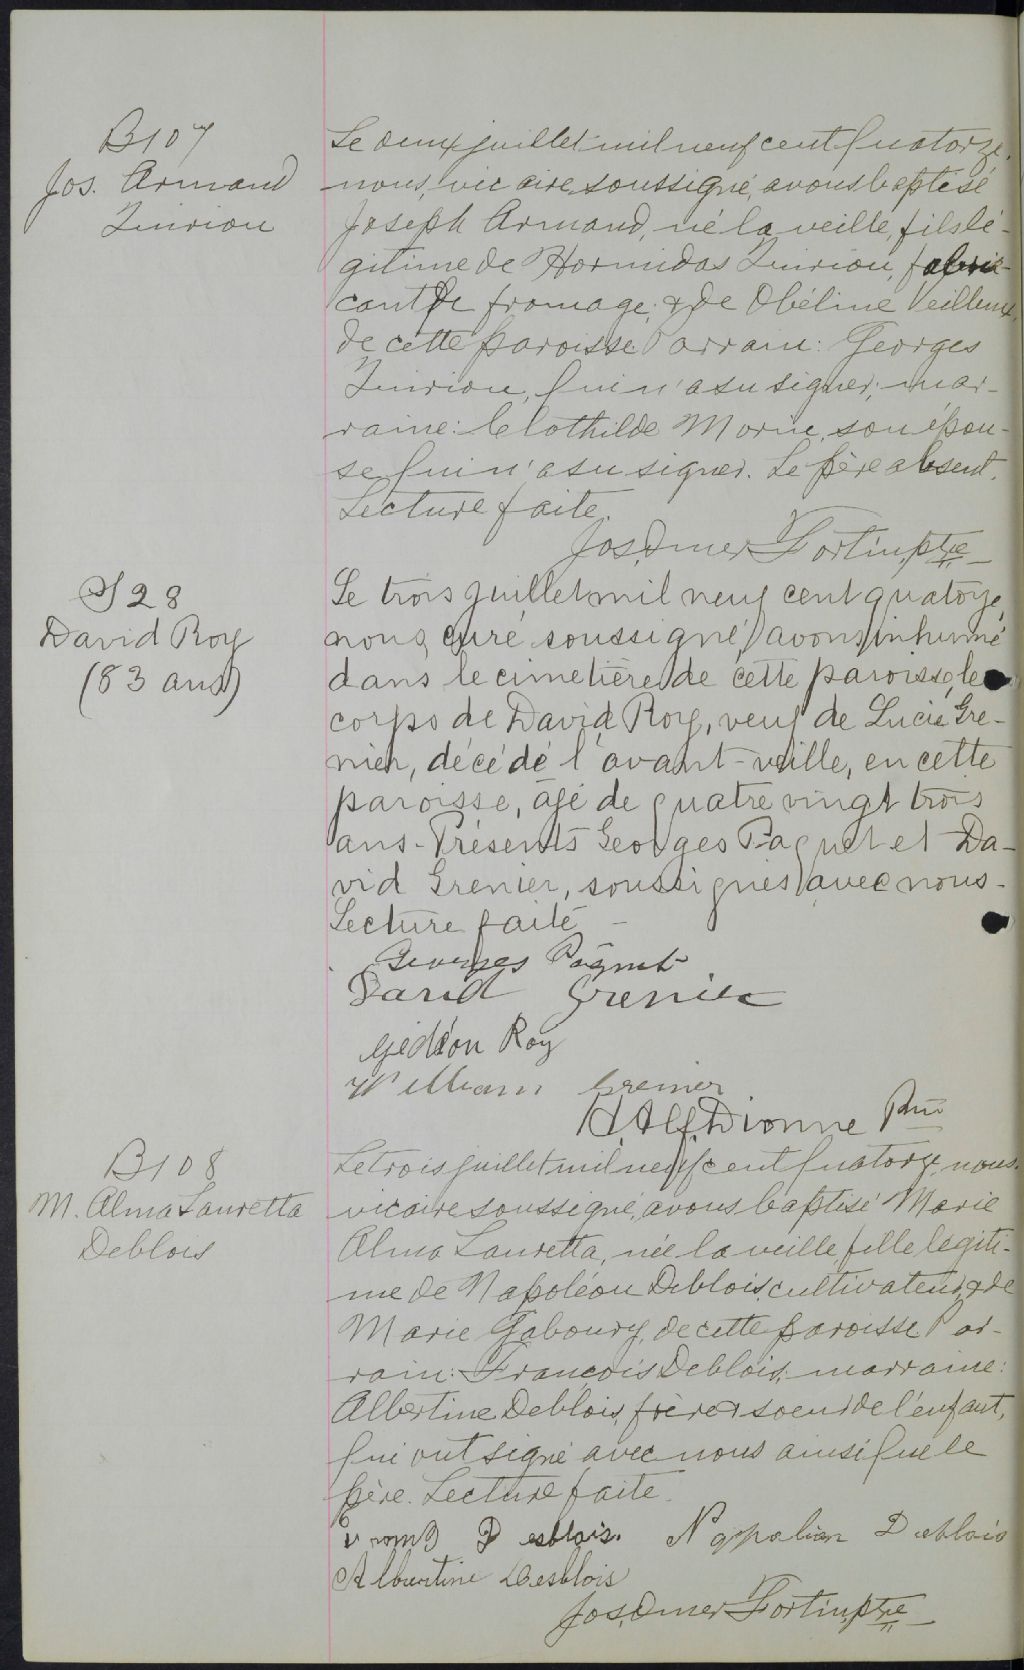 B107
Jos. Armand
Quirion
Le deux juillet mil neuf cent quatorze,
nous, vicaire soussigné, avons baptisé
Joseph Armand, né la veille, fils lé-
gitime de Hormidas Quirion, fabri-
cant de fromage, & de Obéline Veilleux,
de cette paroisse. Parrain: Georges
Quirion, qui n'a su signer; mar-
raine: Clothilde Morin, son épou-
se qui n'a su signer. Le père absent.
Lecture faite.
Jos. Omer Fortin, ptre
S28
David Roy
(83 ans)
Le trois juillet mil neuf cent quatorze,
nous, curé soussigné, avons inhumé
dans le cimetière de cette paroisse, le
corps de David Roy, veuf de Lucie Gre-
nier, décédé l'avant-veille, en cette
paroisse, âgé de quatre vingt trois
ans - Présents Georges Paquet et Da-
vid Grenier, soussignés avec nous -
Lecture faite -
Georges Paquet
David Grenier
Gédéon Roy
William Grenier
H. Alf. Dionne Ptre
B108
M. Alma Lauretta
Deblois
Le trois juillet mil neuf cent quatorze, nous,
vicaire soussigné, avons baptisé Marie
Alma Lauretta, née la veille, fille légiti-
me de Napoléon Deblois, cultivateur, & de
Marie Gaboury, de cette paroisse. Par-
rain: François Deblois; marraine:
Albertine Deblois, frère & soeur de l'enfant,
qui ont signé avec nous ainsi que le
père. Lecture faite.
Desblois. Napolion Deblois
Albertine Desblois
Jos. Omer Fortin, ptre